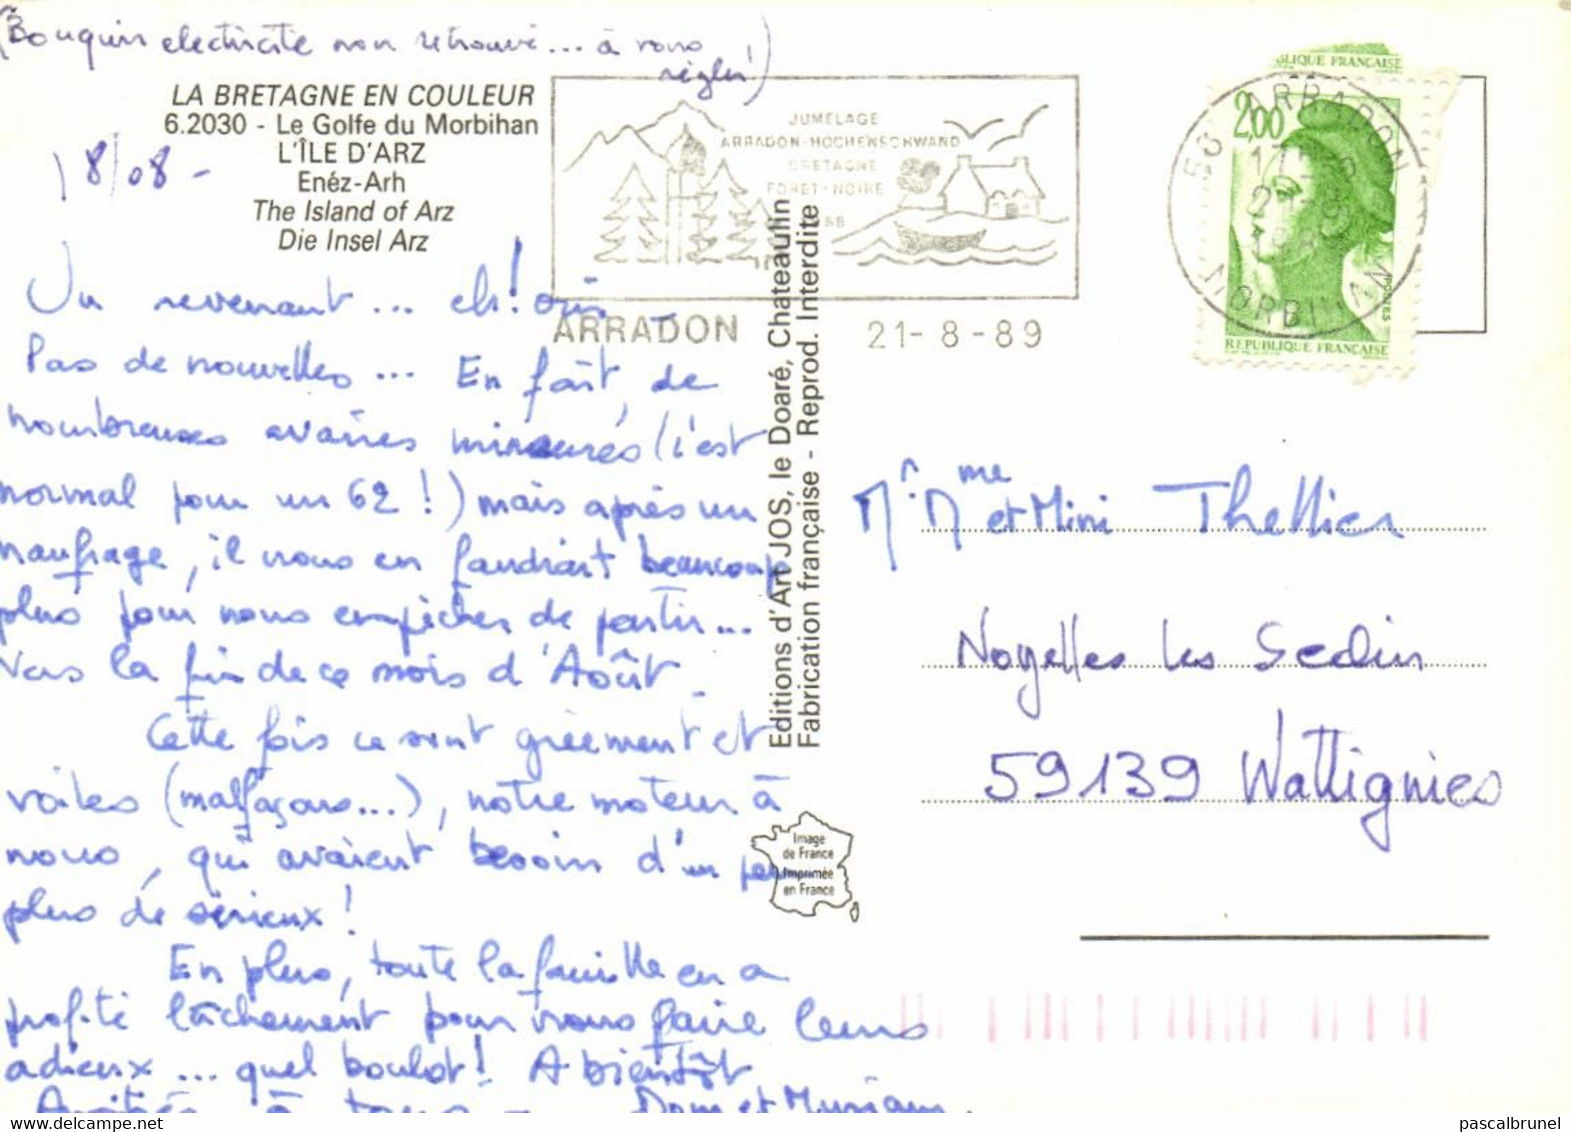 (Bouquin electricité non retrouvé... à vous
régler!)
LA BRETAGNE EN COULEUR
6.2030 - Le Golfe du Morbihan
L'ÎLE D'ARZ
Enéz-Arh
The Island of Arz
Die Insel Arz
18/08 -
JUMELAGE
ARRADON-HOCHENSCHWAND
BRETAGNE
FORET-NOIRE
ARRADON 21-8-89
ARRADON
MORBIHAN
2,00
POSTES
REPUBLIQUE FRANÇAISE
Un revenant... eh! oui
Pas de nouvelles... En fait, de
nombreuses avaries mineures (c'est
normal pour un 62!) mais après un
naufrage, il nous en faudrait beaucoup
plus pour nous empêcher de partir...
Vers la fin de ce mois d'Août.
Cette fois ce sont gréement et
voiles (malfaçons...), notre moteur à
nous, qui avaient besoin d'un peu
plus de sérieux!
En plus, toute la famille en a
profité lâchement pour nous faire leurs
adieux... quel boulot! A bientôt
Amitiés à tous - Dom et Myriam.
Editions d'Art JOS, le Doaré, Chateaulin
Fabrication française - Reprod. Interdite
Image
de France
Imprimée
en France
Mr. Mme et Mimi Thellier
Noyelles les Seclin
59139 Wattignies
pascalbrunel